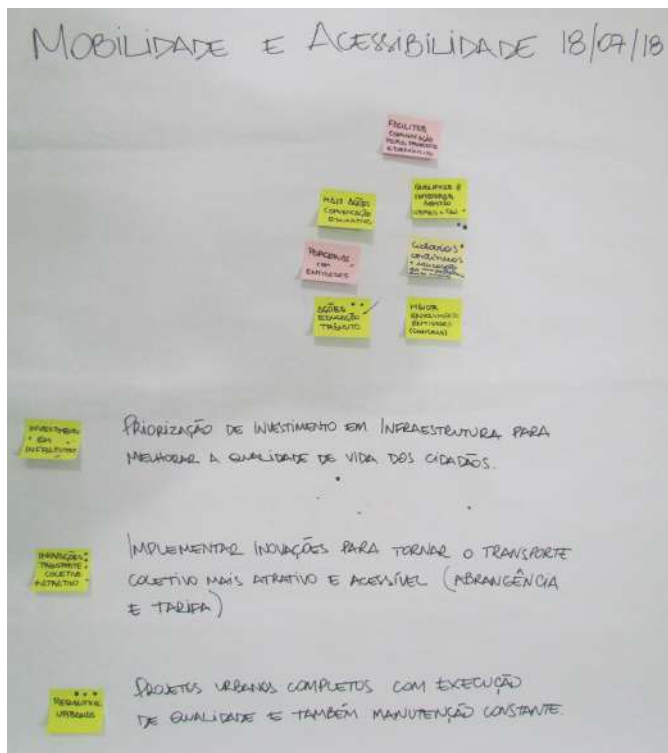 MOBILIDADE E ACESSIBILIDADE 18/07/18
FACILITAR
COMUNICAÇÃO
MAIS AÇÕES
COMUNICAÇÃO
EDUCATIVAS
GESTÃO
PARCERIAS
COM
ENTIDADES
contínuos
AÇÕES
EDUCAÇÃO
TRÂNSITO
MAIOR
ENTIDADES
INVESTIMENTO
EM
PRIORIZAÇÃO DE INVESTIMENTO EM INFRAESTRUTURA PARA
MELHORAR A QUALIDADE DE VIDA DOS CIDADÃOS.
INOVAÇÕES
TRANSPORTE
COLETIVO
ATRATIVO
IMPLEMENTAR INOVAÇÕES PARA TORNAR O TRANSPORTE
COLETIVO MAIS ATRATIVO E ACESSÍVEL (ABRANGÊNCIA
E TARIFA)
URBANOS
PROJETOS URBANOS COMPLETOS COM EXECUÇÃO
DE QUALIDADE E TAMBÉM MANUTENÇÃO CONSTANTE.